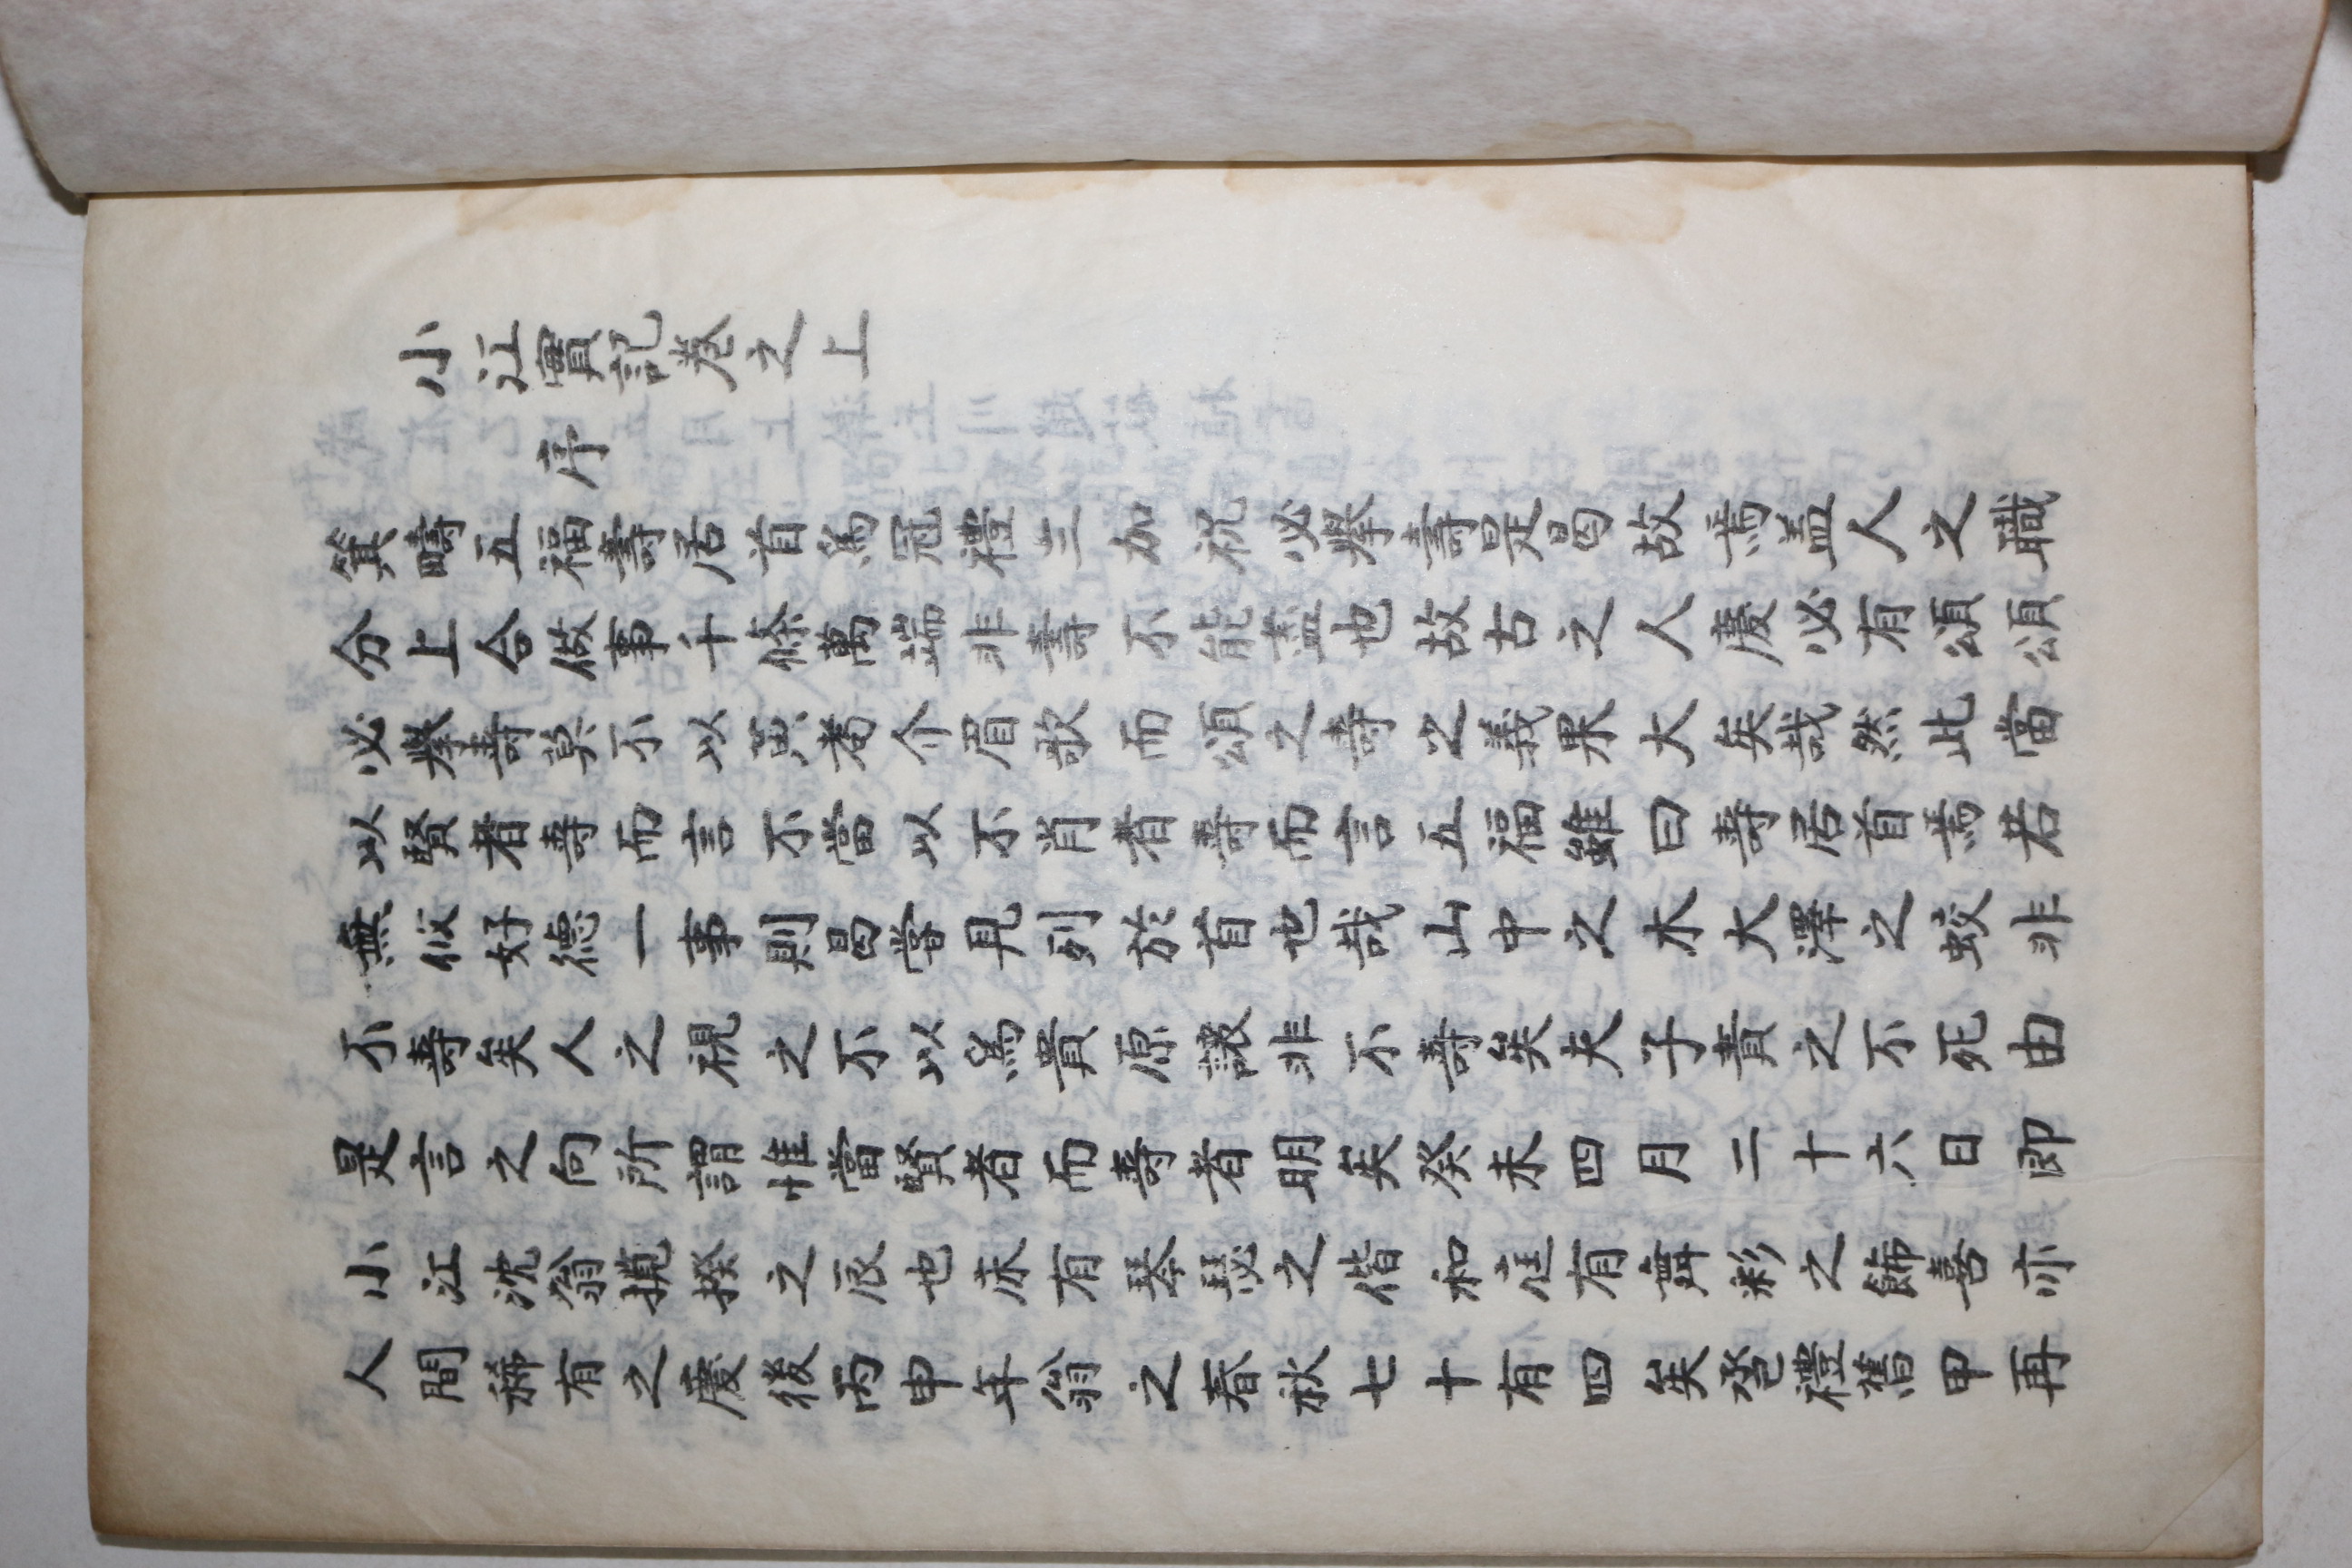 小江實記卷之上
序
箕疇五福壽居首焉冠禮三加祝必擧壽是曷故焉盖人之職
分上合做事千條萬端非壽不能盡也故古之人慶必有頌頌
必擧壽莫不以黃耉介眉歌而頌之壽之義果大矣哉然此當
以賢者壽而言不當以不肖者壽而言五福雖曰壽居首焉若
無攸好德一事則曷嘗見列於首也哉山中之木大澤之蛟非
不壽矣人之視之不以爲貴原讓非不壽矣夫子責之不死由
是言之向所謂惟當賢者而壽者明矣癸未四月二十六日卽
小江沈翁攬揆之辰也床有琴瑟之偕和庭有舞彩之餙喜亦
人間稀有之慶後丙申年翁之春秋七十有四矣巹禮舊甲再